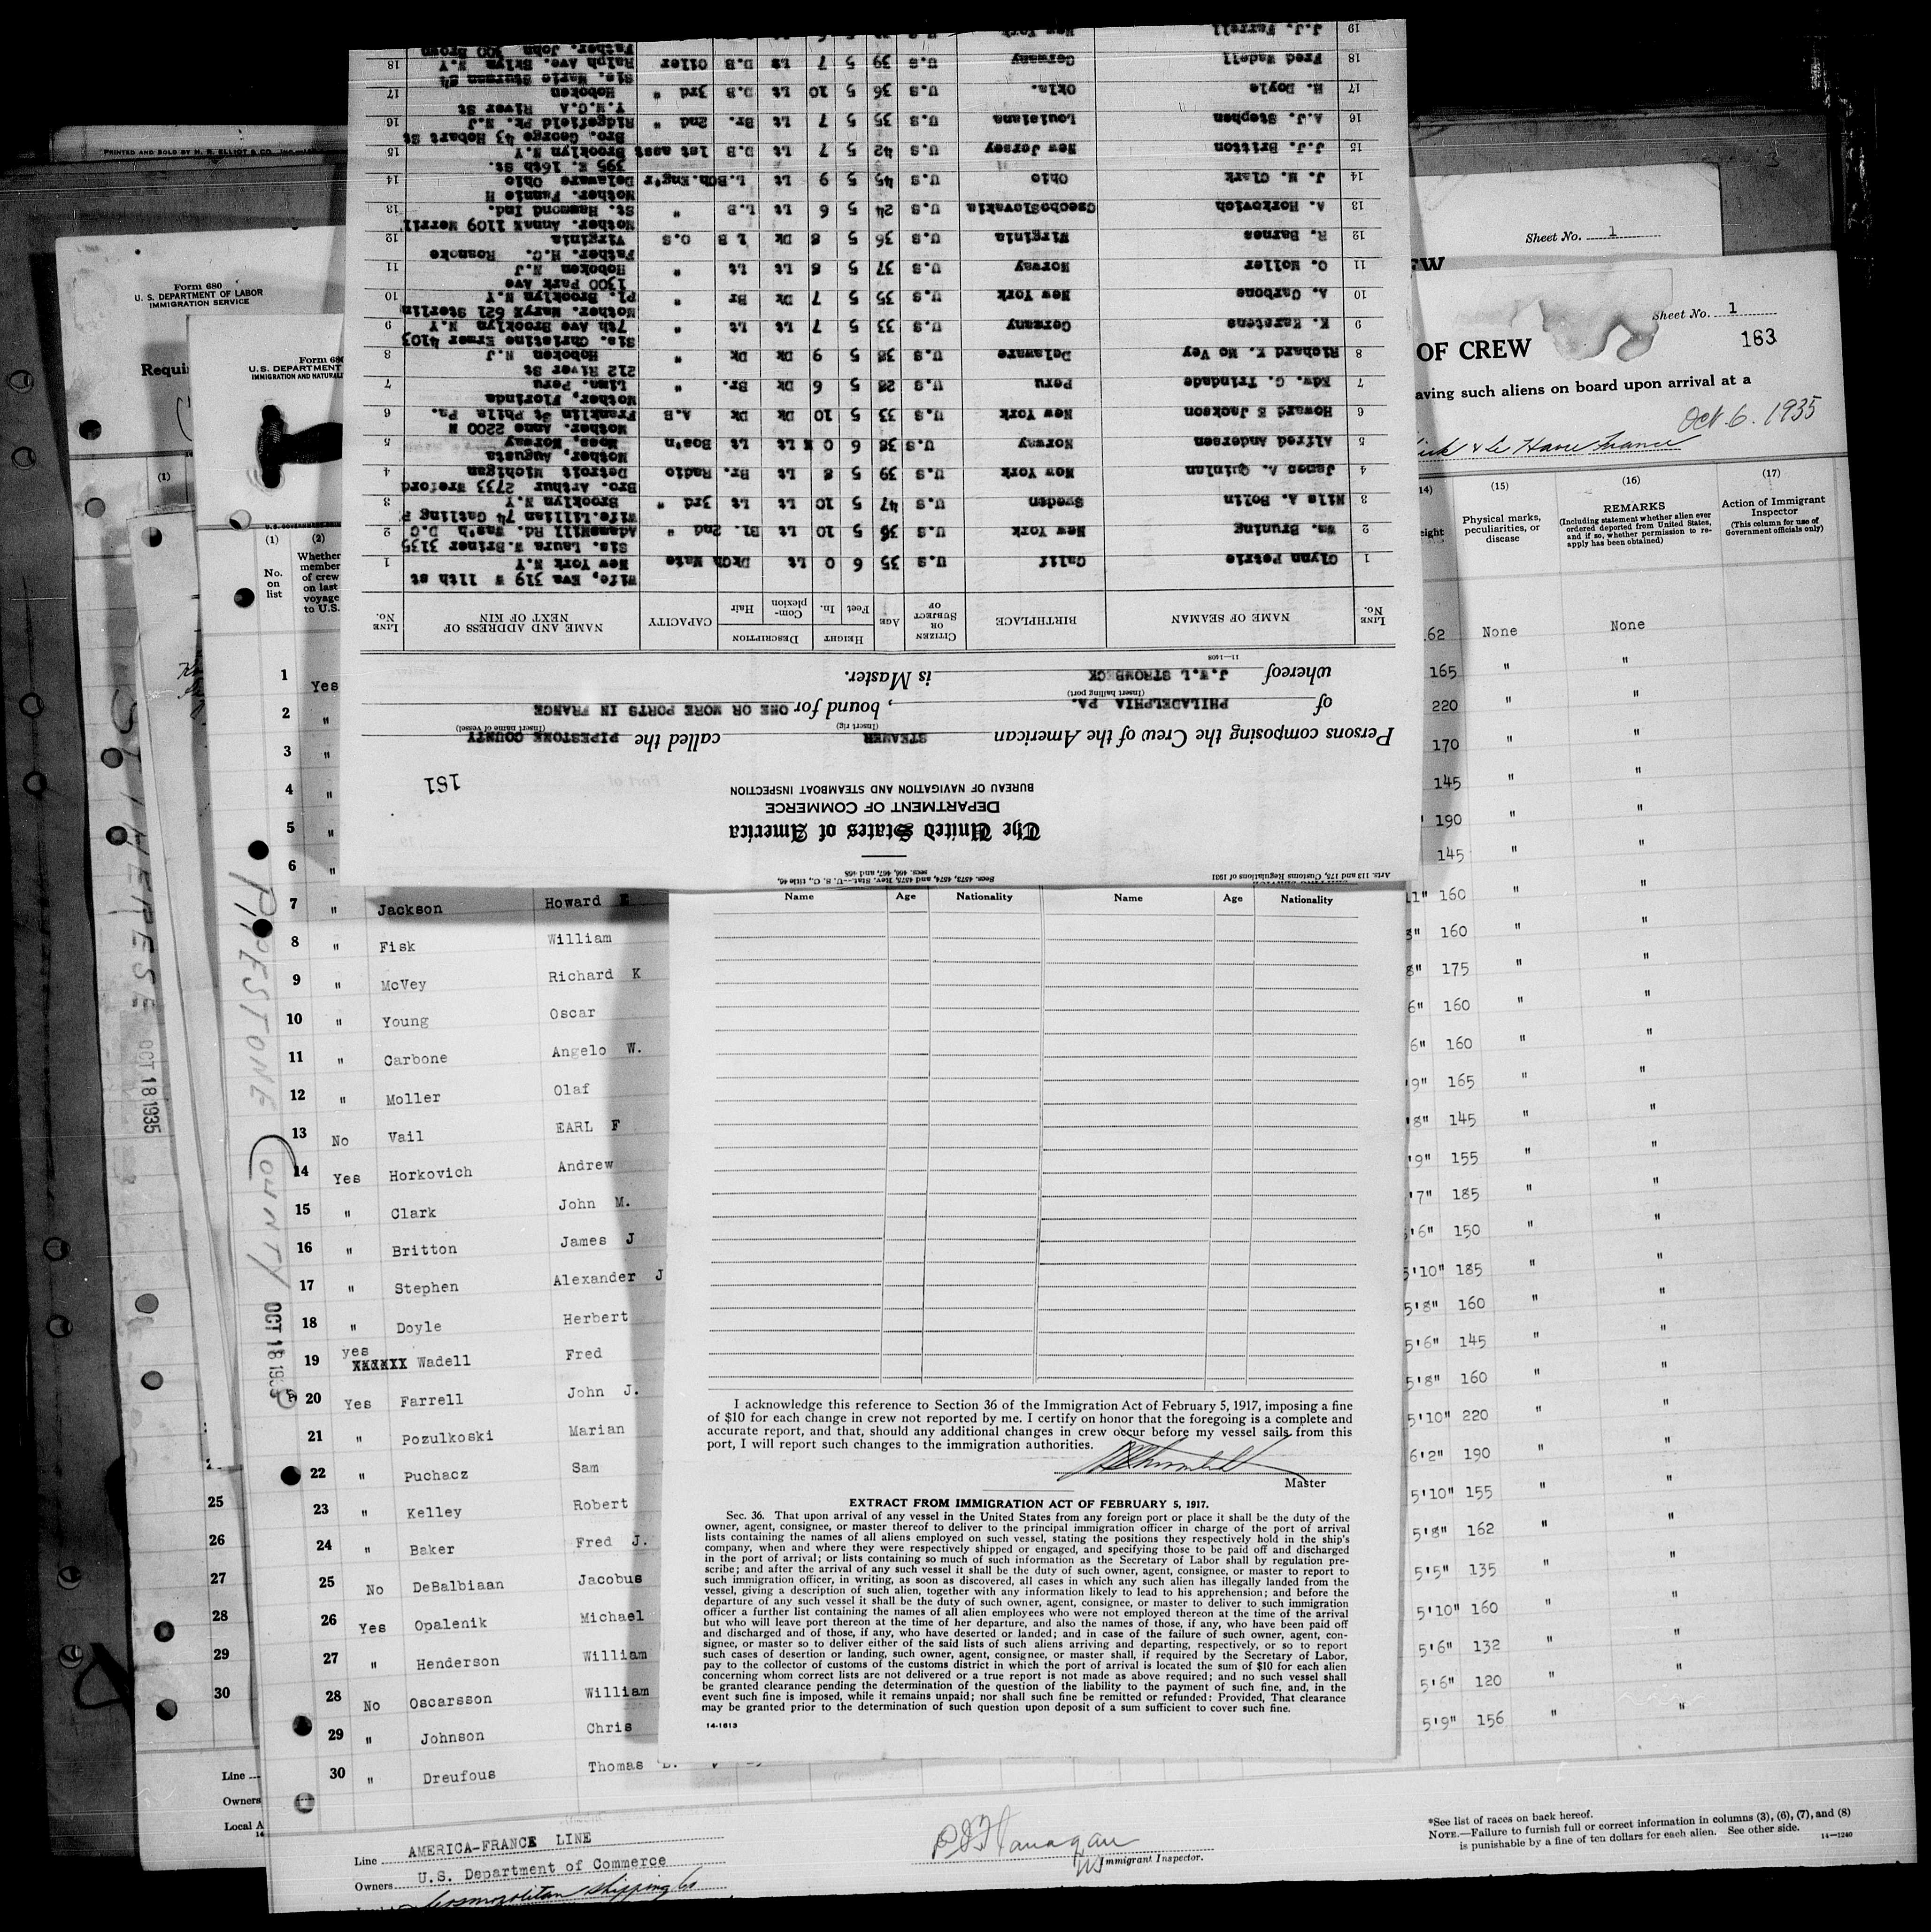 PRINTED AND SOLD BY H. R. ELLIOT & CO.
3
Sheet No. 1
Form 680
U. S. DEPARTMENT OF LABOR
IMMIGRATION SERVICE
(1)
THERESE
OCT 18 1935
25
26
27
28
29
30
Line
Owners
Local A
U.S. DEPARTMENT
Sheet No. 1
163
OF CREW
aving such aliens on board upon arrival at a
Oct. 6. 1935
& Le Havre France
(1)
No. on list
(2)
Whether member of crew on last voyage to U.S.
(15)
Physical marks, peculiarities, or disease
(16)
REMARKS
(Including statement whether alien ever ordered deported from United States, and if so, whether permission to reapply has been obtained)
(17)
Action of Immigrant Inspector
(This column for use of Government officials only)
PIPESTONE COUNTY
OCT 18 1935
1 Yes 62 None None
2 " 165 " "
3 " 220 " "
4 " 170 " "
5 " 145 " "
6 " 190 " "
145 " "
7 " Jackson Howard E 11" 160 " "
8 " Fisk William 160 " "
9 " McVey Richard K 8" 175 " "
10 " Young Oscar 6" 160 " "
11 " Carbone Angelo W. 6" 160 " "
12 " Moller Olaf '9" 165 " "
13 No Vail EARL F '8" 145 " "
14 Yes Horkovich Andrew '9" 155 " "
15 " Clark John M. '7" 185 " "
16 " Britton James J '6" 150 " "
17 " Stephen Alexander J 5'10" 185 " "
18 " Doyle Herbert 5'8" 160 " "
19 yes XXXXXX Wadell Fred 5'6" 145 " "
20 Yes Farrell John J. 5'8" 160 " "
21 " Pozulkoski Marian 5'10" 220 " "
22 " Puchacz Sam 6'2" 190 " "
23 " Kelley Robert 5'10" 155 " "
24 " Baker Fred J. 5'8" 162 " "
25 No DeBalbiaan Jacobus 5'5" 135 " "
26 Yes Opalenik Michael 5'10" 160 " "
27 " Henderson William 5'6" 132 " "
28 No Oscarsson William 5'6" 120 " "
29 " Johnson Chris 5'9" 156 " "
30 " Dreufous Thomas
Line AMERICA-FRANCE LINE
Owners U.S. Department of Commerce
Cosmopolitan Shipping Co
Immigrant Inspector.
*See list of races on back hereof.
NOTE.—Failure to furnish full or correct information in columns (3), (6), (7), and (8)
is punishable by a fine of ten dollars for each alien. See other side.
14—1240
Secs. 4573, 4574, and 4575, Rev. Stat.—U. S. C., title 46, secs. 466, 467, and 468
Arts. 113 and 175, Customs Regulations of 1931
The United States of America
DEPARTMENT OF COMMERCE
BUREAU OF NAVIGATION AND STEAMBOAT INSPECTION
161
Persons composing the Crew of the American STEAMER called the PIPESTONE COUNTY
(Insert rig) (Insert name of vessel)
of PHILADELPHIA PA. , bound for ONE OR MORE PORTS IN FRANCE
(Insert hailing port)
whereof J.W.L STROMBECK is Master.
11—1408
LINE No. NAME OF SEAMAN BIRTHPLACE CITIZEN OR SUBJECT OF AGE HEIGHT Feet In. DESCRIPTION Complexion Hair CAPACITY NAME AND ADDRESS OF NEXT OF KIN LINE No.
1 Glynn Petrie Calif U.S 35 6 0 Lt Dk Ch Mate Wife, Eva 319 W 11th st New York N.Y 1
2 Wm. Bruning New York U.S 36 5 10 Lt Bl. 2nd " Sis. Laura W.Briner 3135 AdamsMill Rd. Was'h D.C 2
3 Nils A. Bolin Sweden U.S 47 5 10 Lt Lt 3rd " Wife.Lillian 74 Gatling P Brooklyn N.Y 3
4 James A. Quinlan New York U.S 39 5 8 Lt Br. Radio Bro. Arthur 2733 Wreford Detroit Michigan 4
5 Alfred Andersen Norway U.S 38 6 0 Lt Lt Bos'n Mother, Augusta Moss, Norway 5
6 Howard E Jackson New York U.S 33 5 10 Dk Dk A.B Mother. Anne 2200 N Franklin St Phila Pa. 6
7 Edw. G. Trindade Peru U.S 28 5 6 Dk Br. " Mother, Florinda Lima, Peru 7
8 Richard K. Mc Vey Delaware U.S 38 5 9 Dk Dk " 212 River St Hoboken N.J 8
9 K. Karstens Germany U.S 33 5 7 Lt Lt " Sis. Christine Ermer 4103 7th Ave Brooklyn N.Y 9
10 A. Carbone New York U.S 35 5 7 Dk Br " Mother. Mary 621 Sterlin Pl. Brooklyn N.Y 10
11 O. Moller Norway U.S 37 5 8 Lt Lt " 1300 Park Ave Hoboken N.J 11
12 R. Barnes Virginia U.S 36 5 8 Dk L B O.S Father. H.C. Roanoke Virginia 12
13 A. Horkovich Czechoslovakia U.S 24 5 6 Lt L.B " Mother. Anna 1109 Merril St. Hammond Ind. 13
14 J. M. Clark Ohio U.S 45 5 9 Lt L.B Ch.Eng'r Mother. Fannie H Delaware Ohio 14
15 J.J. Britton New Jersey U.S 42 5 7 Lt D.B 1st asst 395 E. 16th St. Brooklyn N.Y 15
16 A.J. Stephen Louisiana U.S 35 5 7 Lt Br. 2nd " Bro. George 43 Hobart St Ridgefield Pk. N.J 16
17 H. Doyle Okla. U.S 36 5 10 Lt D.B 3rd " Y.M.C.A River St Hoboken 17
18 Fred Wadell Germany U.S 39 5 7 Lt D.B Oiler Sis. Marie Sturman 54 Ralph Ave. Bklyn N.Y 18
19 J.J. Farrell New York Father. John 300 Brown
Name Age Nationality Name Age Nationality
I acknowledge this reference to Section 36 of the Immigration Act of February 5, 1917, imposing a fine
of $10 for each change in crew not reported by me. I certify on honor that the foregoing is a complete and
accurate report, and that, should any additional changes in crew occur before my vessel sails from this
port, I will report such changes to the immigration authorities.
Master
EXTRACT FROM IMMIGRATION ACT OF FEBRUARY 5, 1917.
Sec. 36. That upon arrival of any vessel in the United States from any foreign port or place it shall be the duty of the
owner, agent, consignee, or master thereof to deliver to the principal immigration officer in charge of the port of arrival
lists containing the names of all aliens employed on such vessel, stating the positions they respectively hold in the ship's
company, when and where they were respectively shipped or engaged, and specifying those to be paid off and discharged
in the port of arrival; or lists containing so much of such information as the Secretary of Labor shall by regulation pre-
scribe; and after the arrival of any such vessel it shall be the duty of such owner, agent, consignee, or master to report to
such immigration officer, in writing, as soon as discovered, all cases in which any such alien has illegally landed from the
vessel, giving a description of such alien, together with any information likely to lead to his apprehension; and before the
departure of any such vessel it shall be the duty of such owner, agent, consignee, or master to deliver to such immigration
officer a further list containing the names of all alien employees who were not employed thereon at the time of the arrival
but who will leave port thereon at the time of her departure, and also the names of those, if any, who have been paid off
and discharged and of those, if any, who have deserted or landed; and in case of the failure of such owner, agent, con-
signee, or master so to deliver either of the said lists of such aliens arriving and departing, respectively, or so to report
such cases of desertion or landing, such owner, agent, consignee, or master shall, if required by the Secretary of Labor,
pay to the collector of customs of the customs district in which the port of arrival is located the sum of $10 for each alien
concerning whom correct lists are not delivered or a true report is not made as above required; and no such vessel shall
be granted clearance pending the determination of the question of the liability to the payment of such fine, and, in the
event such fine is imposed, while it remains unpaid; nor shall such fine be remitted or refunded: Provided, That clearance
may be granted prior to the determination of such question upon deposit of a sum sufficient to cover such fine.
14-1613